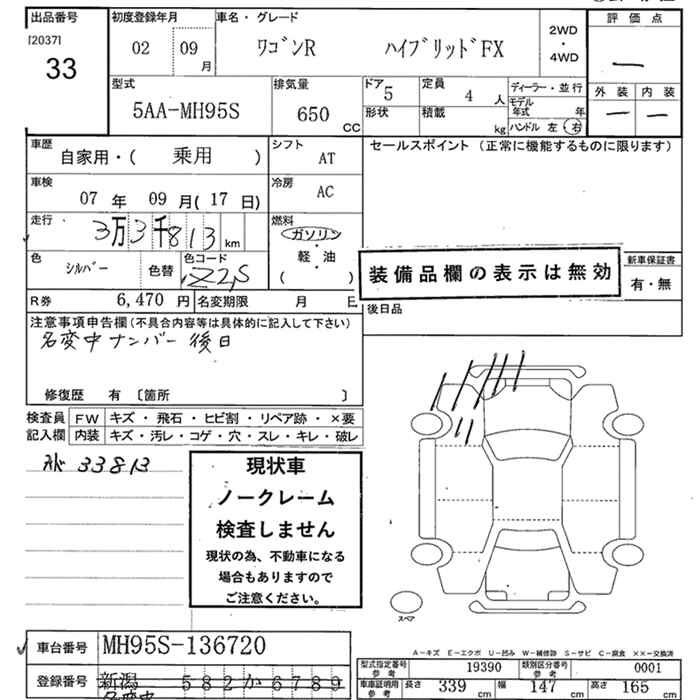 出品番号
[2037]
33
初度登録年月
02 09
月
車名・グレード
ワゴンR ハイブリッドFX
2WD
・
4WD
評価点
—
外装 内装
— —
型式
5AA-MH95S
排気量
650
CC
ドア
5
定員
4 人
形状
積載
kg
ディーラー・並行
モデル
年式 年
ハンドル 左・右
車歴
自家用・( 乗用 )
シフト
AT
セールスポイント (正常に機能するものに限ります)
車検
07 年 09 月( 17 日)
冷房
AC
走行
3万3千813 km
燃料
ガソリン
・
軽・油
( )
色
シルバー
色替
色コード
Z2S
装備品欄の表示は無効
新車保証書
有・無
R券 6,470 円
名変期限 月 日
後日品
注意事項申告欄(不具合内容等は具体的に記入して下さい)
名変中ナンバー後日
修復歴 有 〔箇所 〕
検査員
記入欄
FW キズ・飛石・ヒビ割・リペア跡・×要
内装 キズ・汚レ・コゲ・穴・スレ・キレ・破レ
33813
現状車
ノークレーム
検査しません
現状の為、不動車になる
場合もありますので
ご注意ください。
スペア
A-キズ E-エクボ U-凹み W-補修跡 S-サビ C-腐食 ××-交換済
車台番号 MH95S-136720
登録番号 新潟 582 か 6789
名変中
型式指定番号
参考
19390
類別区分番号
参考
0001
車車証明用
参考
長さ 339 cm
幅 147 cm
高さ 165 cm